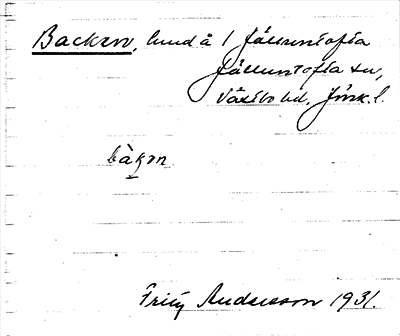 Backen, lund å 1 Jälluntofta
Jälluntofta sn,
Västbo hd, Jönk. l.
bàkən
Fritz Andersson 1931.